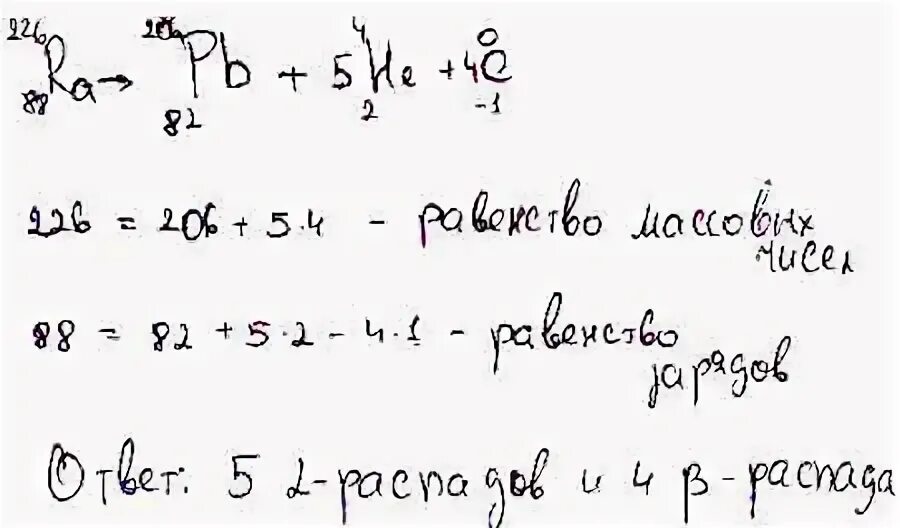 ²²⁶₈₈Ra → ²⁰⁶₈₂Pb + 5 ⁴₂He + 4 ⁰₋₁e
226 = 206 + 5·4 - равенство массовых
чисел
88 = 82 + 5·2 - 4·1 - равенство
зарядов
Ответ: 5 α-распадов и 4 β-распада